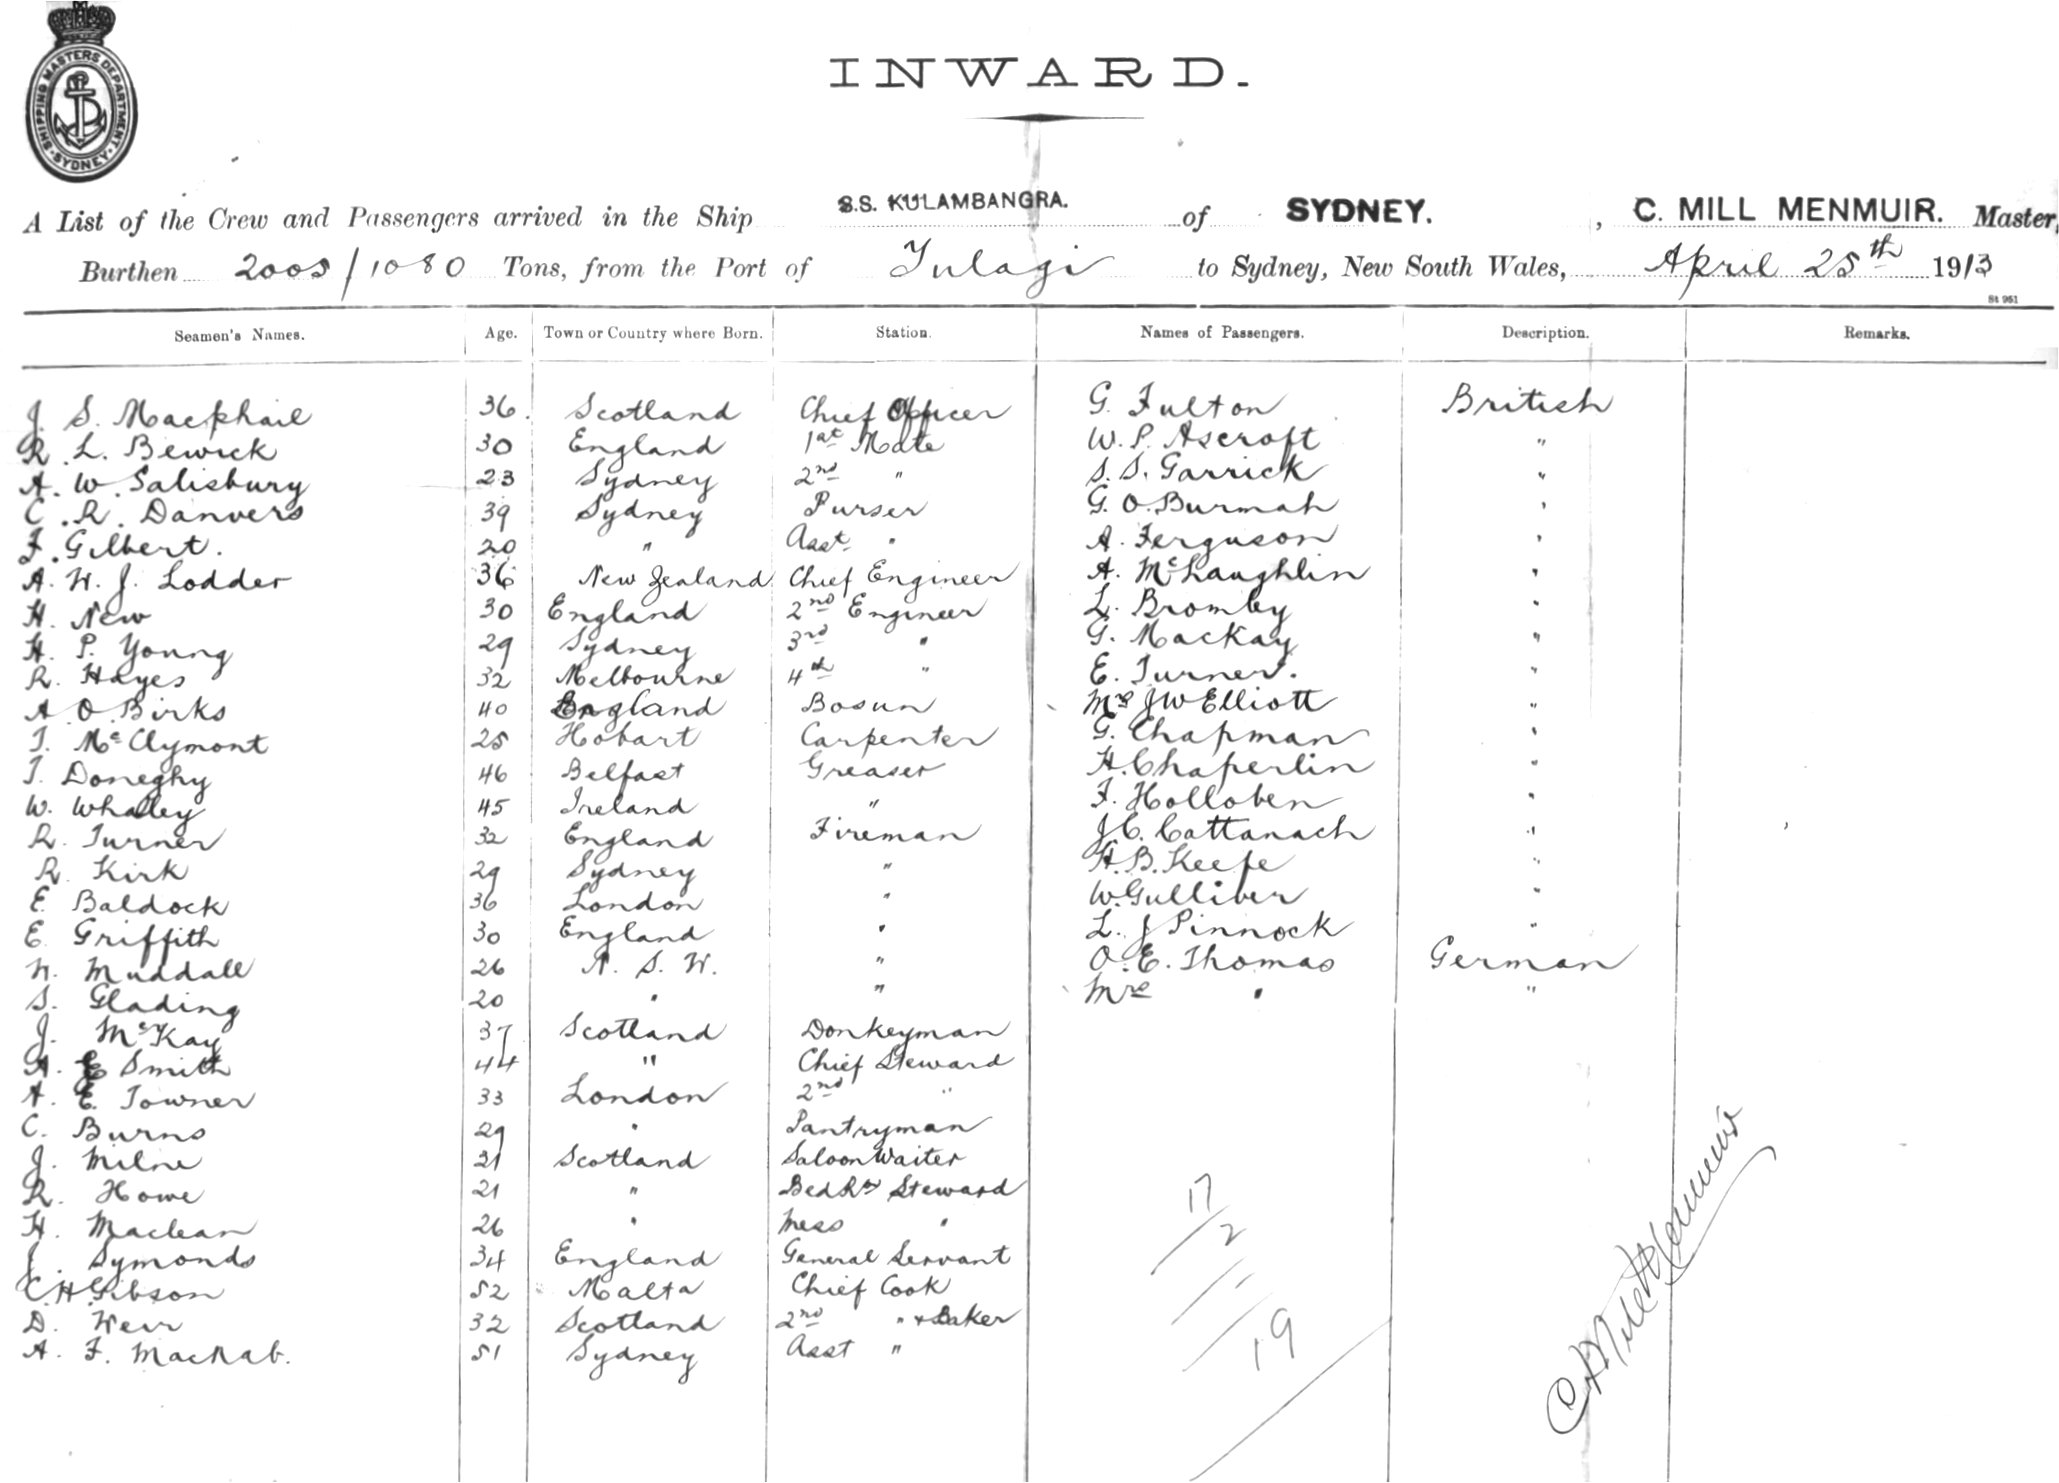 SHIPPING MASTERS DEPARTMENT · SYDNEY ·
INWARD.
A List of the Crew and Passengers arrived in the Ship S.S. KULAMBANGRA. of SYDNEY. , C. MILL MENMUIR. Master,
Burthen 2005/1080 Tons, from the Port of Tulagi to Sydney, New South Wales, April 25th 1913
St 961
Seamen's Names. Age. Town or Country where Born. Station. Names of Passengers. Description. Remarks.
J. S. Macphail 36. Scotland Chief Officer G. Fulton British
R. L. Bewick 30 England 1st Mate W. P. Ascroft "
A. W. Salisbury 23 Sydney 2nd " S. S. Garrick "
C. R. Danvers 39 Sydney Purser G. O. Burmah "
F. Gilbert. 20 " Asst. " A. Ferguson "
A. W. J. Lodder 36 New Zealand Chief Engineer A. McLaughlin "
H. New 30 England 2nd Engineer L. Bromley "
H. P. Young 29 Sydney 3rd " G. Mackay "
R. Hayes 32 Melbourne 4th " E. Turner. "
A O Birks 40 England Bosun Mrs J W Elliott "
T. McClymont 25 Hobart Carpenter G. Chapman "
T. Doneghy 46 Belfast Greaser H. Chaperlin "
W. Whalley 45 Ireland " F. Holloben "
R. Turner 32 England Fireman J C. Cattanach "
R. Kirk 29 Sydney " H. B. Keefe "
E. Baldock 36 London " W. Gulliver "
E. Griffith 30 England " L. J Pinnock "
W. Muddall 26 N. S. W. " O. E. Thomas German
S. Glading 20 " " Mrs " "
J. McKay 37 Scotland Donkeyman
A. E Smith 44 " Chief Steward
A. E. Towner 33 London 2nd "
C. Burns 29 " Pantryman
J. Milne 31 Scotland Saloon Waiter
R. Howe 21 " Bed Rm Steward
H. Maclean 26 " Mess "
J. Symonds 34 England General Servant
C H Gibson 52 Malta Chief Cook
D. Weir 32 Scotland 2nd " & Baker
A. F. MacNab. 51 Sydney Asst "
17
2
19
C Mill Menmuir